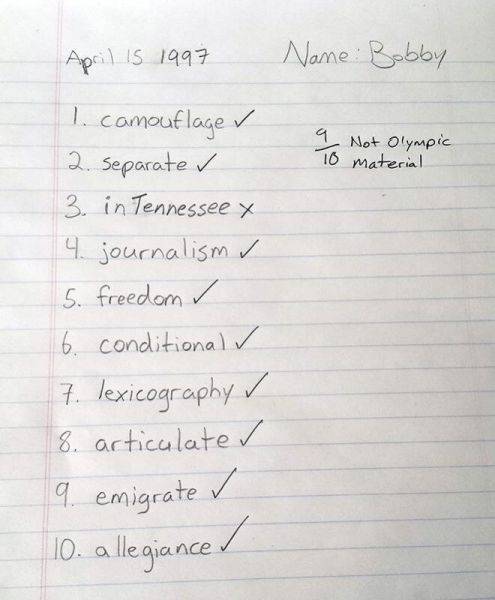 April 15 1997 Name: Bobby
1. camouflage ✓
9/10 Not Olympic
Material
2. separate ✓
3. inTennessee x
4. journalism ✓
5. freedom ✓
6. conditional ✓
7. lexicography ✓
8. articulate ✓
9. emigrate ✓
10. allegiance ✓